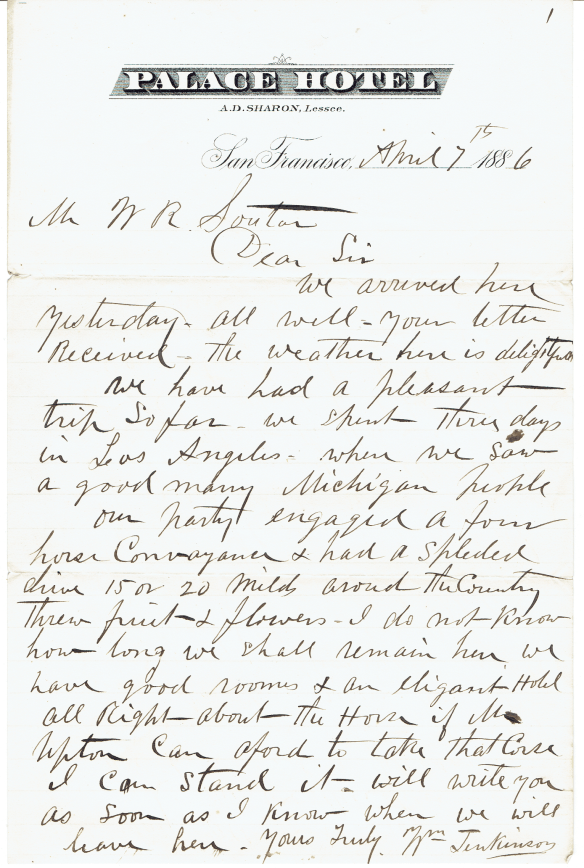 1
PALACE HOTEL
A.D. SHARON, Lessee.
San Francisco, April 7th 1886
Mr W R Soutar
Dear Sir
we arrived here
yesterday - all well - your letter
Received - the weather here is delightful
we have had a pleasant
trip So far - we spent three days
in Los Angeles - when we saw
a good many Michigan people
our party engaged a four
horse Convayance & had a Spleded
drive 15 or 20 Milds aroud the Country
threw fruit & flowers - I do not know
how long we shall remain here we
have good rooms & an eligant Hotel
all Right - about the Horse if Mr
Upton Can aford to take that Corse
I can Stand it - will write you
as soon as I know when we will
leave here - Yours Truly Wm Jenkinson